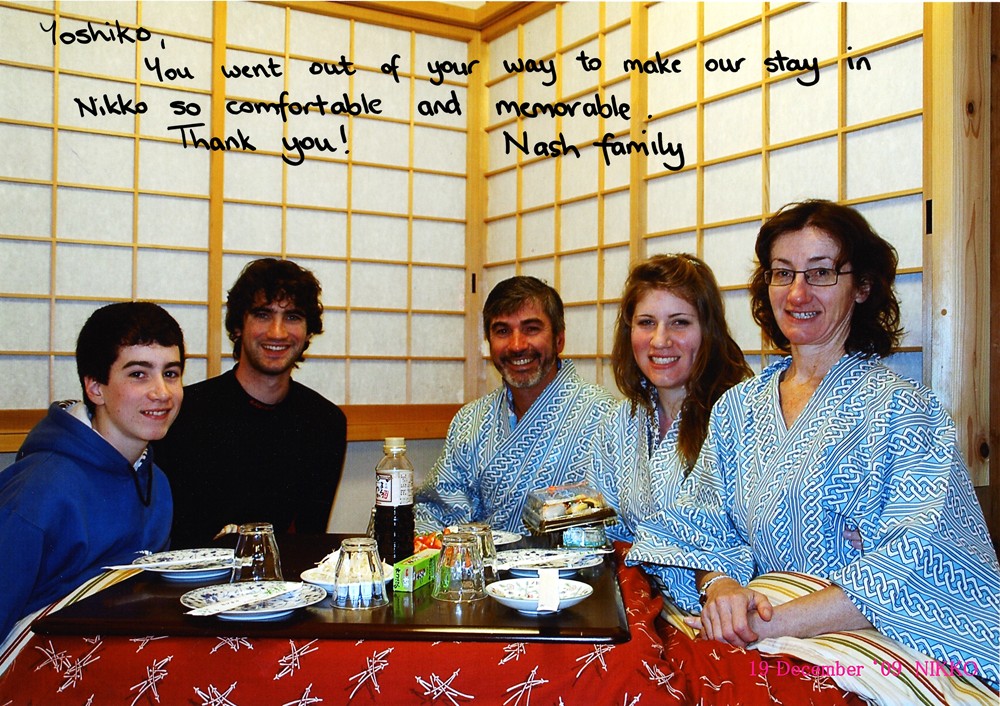 Yoshiko,
You went out of your way to make our stay in
Nikko so comfortable and memorable.
Thank you! Nash family
19 December '09 NIKKO